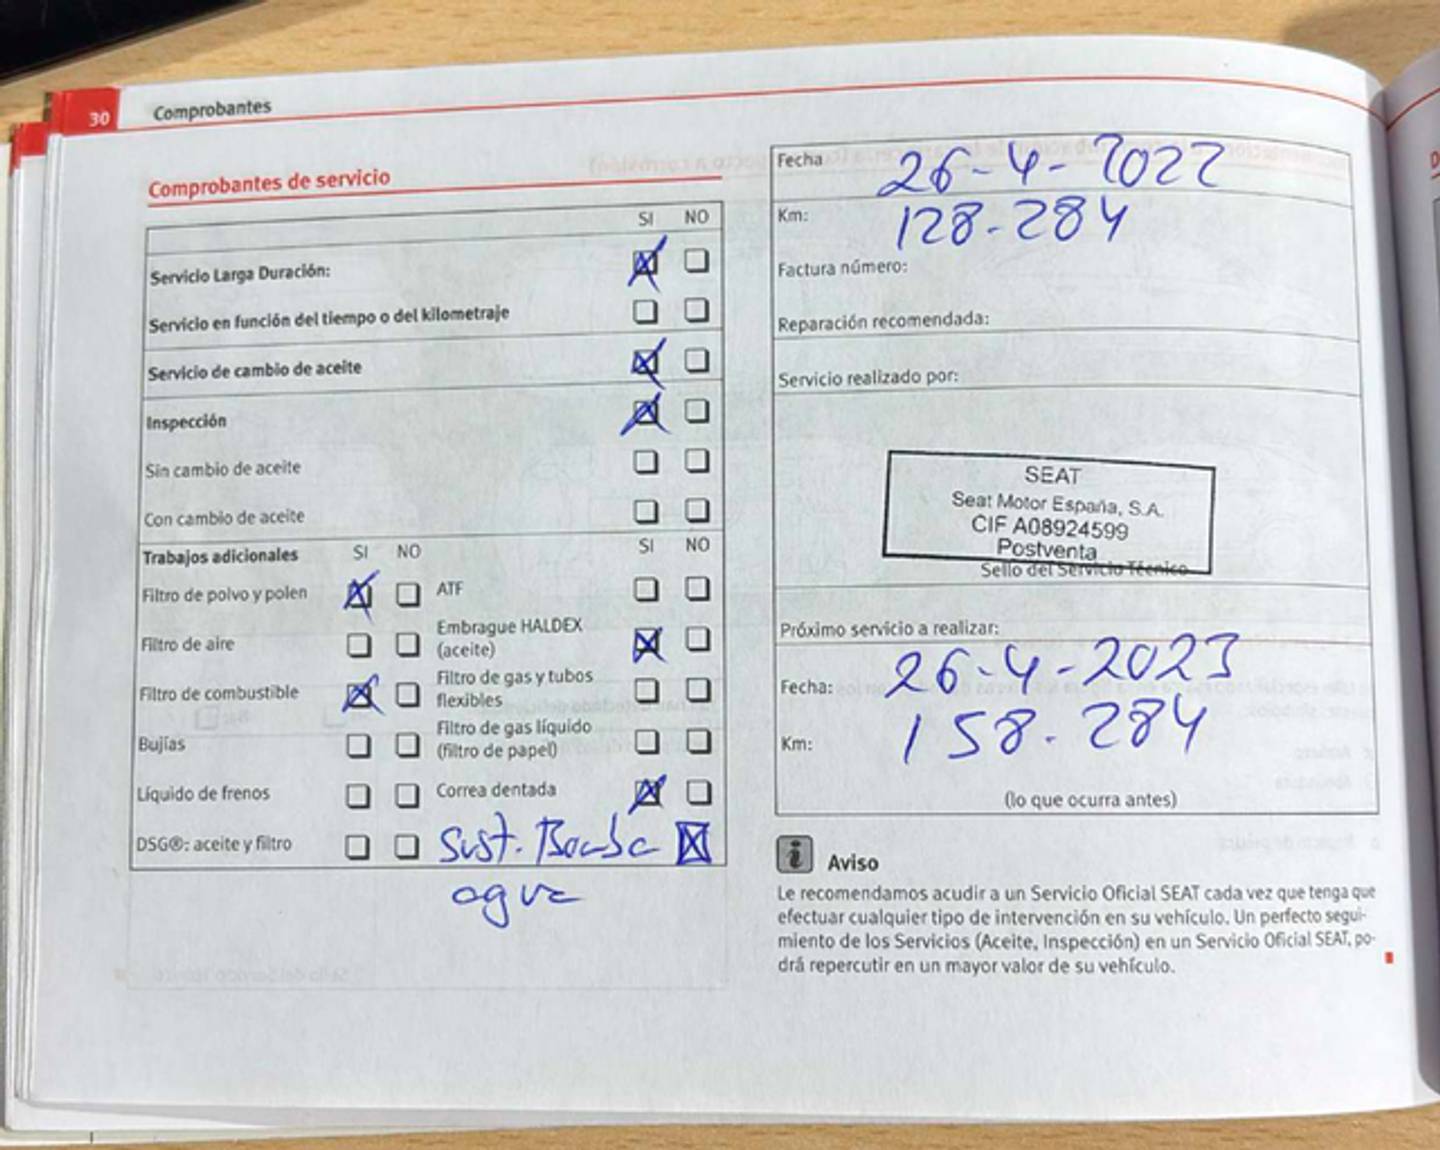 30 Comprobantes
Comprobantes de servicio
SI NO
Servicio Larga Duración:
Servicio en función del tiempo o del kilometraje
Servicio de cambio de aceite
Inspección
Sin cambio de aceite
Con cambio de aceite
Trabajos adicionales SI NO SI NO
Filtro de polvo y polen ATF
Filtro de aire Embrague HALDEX
(aceite)
Filtro de combustible Filtro de gas y tubos
flexibles
Bujías Filtro de gas líquido
(filtro de papel)
Líquido de frenos Correa dentada
DSG®: aceite y filtro Sust. Bomba
agua
Fecha 26-4-2022
Km: 128.284
Factura número:
Reparación recomendada:
Servicio realizado por:
SEAT
Seat Motor España, S.A.
CIF A08924599
Postventa
Sello del Servicio Técnico
Próximo servicio a realizar:
Fecha: 26-4-2023
Km: 158.284
(lo que ocurra antes)
i Aviso
Le recomendamos acudir a un Servicio Oficial SEAT cada vez que tenga que
efectuar cualquier tipo de intervención en su vehículo. Un perfecto segui-
miento de los Servicios (Aceite, Inspección) en un Servicio Oficial SEAT, po-
drá repercutir en un mayor valor de su vehículo.